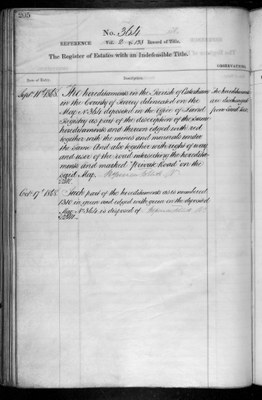 205
No. 364
REFERENCE Vol. 2 p. 193 Record of Title.
The Register of Estates with an Indefeasible Title.
Date of Entry. Description. OBSERVATIONS.
Sept. 11th 1868. The hereditaments in the Parish of Caterham The hereditaments
in the County of Surrey delineated on the are discharged
Map No. 364 deposited in the Office of Land from Land Tax.
Registry as part of the description of the same
hereditaments and thereon edged with red
together with the mines and minerals under
the same And also together with right of way
and user of the road intersecting the heredita-
ments and marked "Private Road" on the
said Map.
Octr. 17th 1868. Such part of the hereditaments as is numbered
in green and edged with green on the deposited
Map No. 364 is disposed of